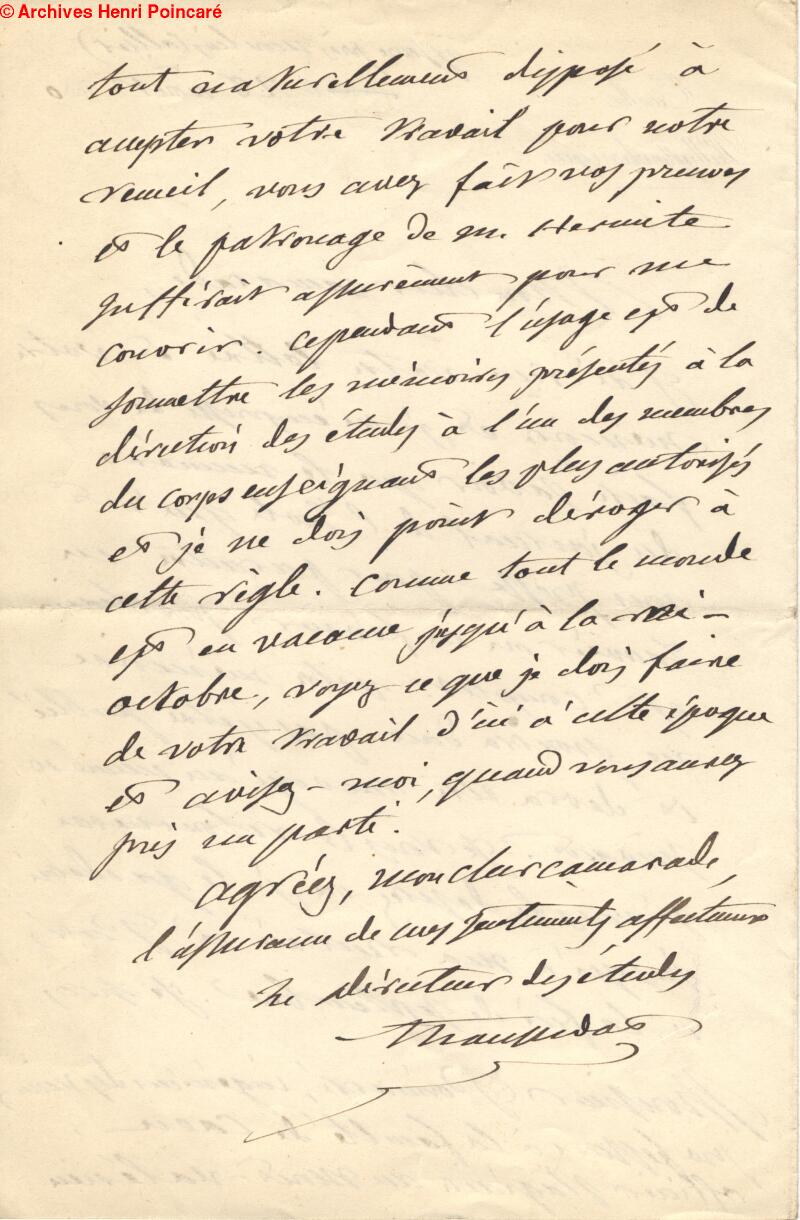 © Archives Henri Poincaré
tout naturellement disposé à
accepter votre travail pour notre
recueil, vous avez fait vos preuves
et le patronage de M. Hermite
suffirait assurément pour me
couvrir. Cependant l'usage est de
soumettre les mémoires présentés à la
direction des études à l'un des membres
du corps enseignant les plus autorisés
et je ne dois point déroger à
cette règle. Comme tout le monde
est en vacance jusqu'à la mi-
octobre, voyez ce que je dois faire
de votre travail d'ici à cette époque
et avisez-moi, quand vous aurez
pris un parti.
Agréez, mon cher camarade,
l'assurance de mes sentiments affectueux
Le directeur des études